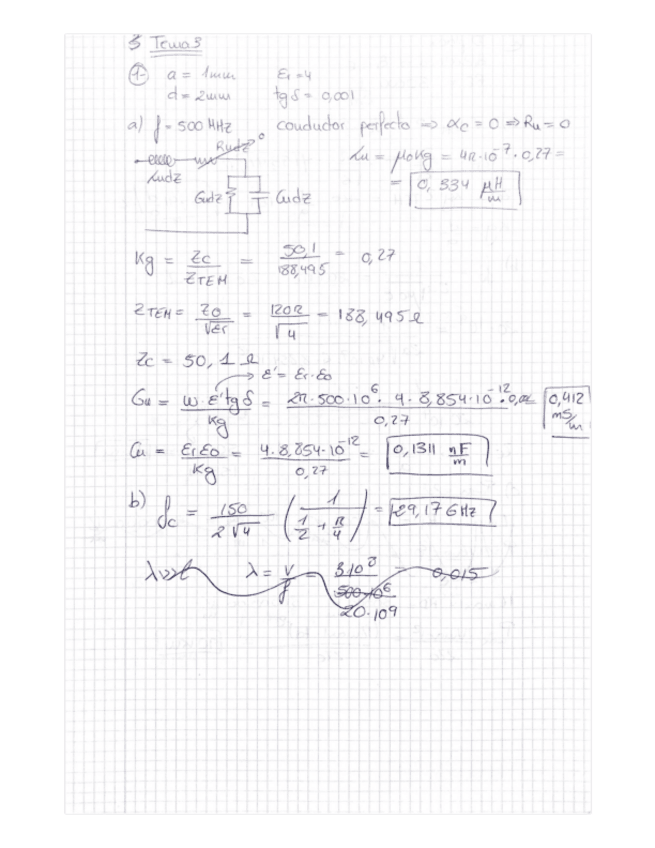 Tema 3
1- a = 1mm Er = 4
d = 2mm tg δ = 0,001
a) f = 500 MHz conductor perfecto => αc = 0 => Ru = 0
Rudz 0
Ludz
Gudz Cudz
Lu = μ0Kg = 4π·10^-7 · 0,27 =
= 0,334 μH/m
Kg = Zc/ZTEM = 50,1/188,495 = 0,27
ZTEM = Z0/√Er = 120π/√4 = 188,495 Ω
Zc = 50,1 Ω
→ ε' = Er·E0
Gu = ω ε' tg δ / Kg = 2π·500·10^6 · 4 · 8,854·10^-12 · / 0,27 0,412 mS/m
Cu = ErE0/Kg = 4·8,854·10^-12 / 0,27 = 0,1311 nF/m
b) fc = 150/(2√4) (1/(1/2 + π/4)) = 29,17 GHz
λ = v/f = 3·10^8 / 500·10^6 = 0,015
20·10^9